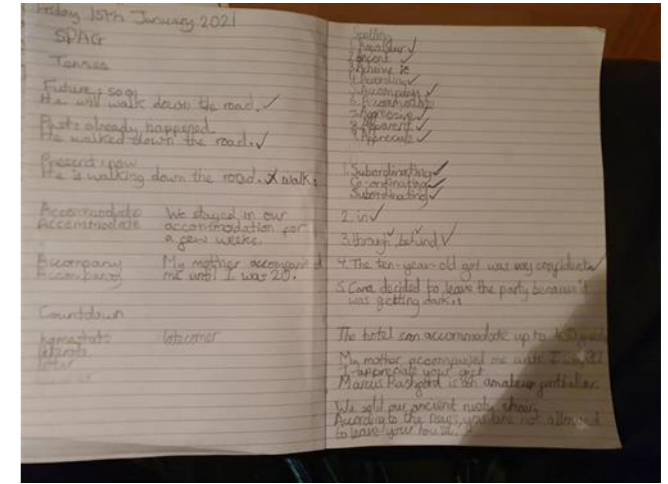 Friday 15th January 2021
SPAG
Tenses
Future: soon
He will walk down the road. ✓
Past: already happened
He walked down the road. ✓
Present: now
He is walking down the road. X walks
Accommodate We stayed in our
Accommodate accommodation for
a few weeks.
Accompany My mother accompanied
Accompany me until I was 20.
Countdown
latecomer
later
Spelling
1. ✓
2. ✓
3.
4. According ✓
5. Accompany ✓
6. Accommodate
7. Aggressive ✓
8. Apparent ✓
9. Appreciate ✓
1. Subordinating ✓
Co-ordinating ✓
Subordinating ✓
2. in ✓
3. through, behind ✓
4. The ten-year-old girl was very confident. ✓
5. Cara decided to leave the party because it
was getting dark.
The hotel can accommodate up to
My mother accompanied me until I was 20.
I appreciate your gift.
Marcus Rashford is an amateur footballer.
We sold our ancient rusty chair.
According to the news, you are not allowed
to leave your house.